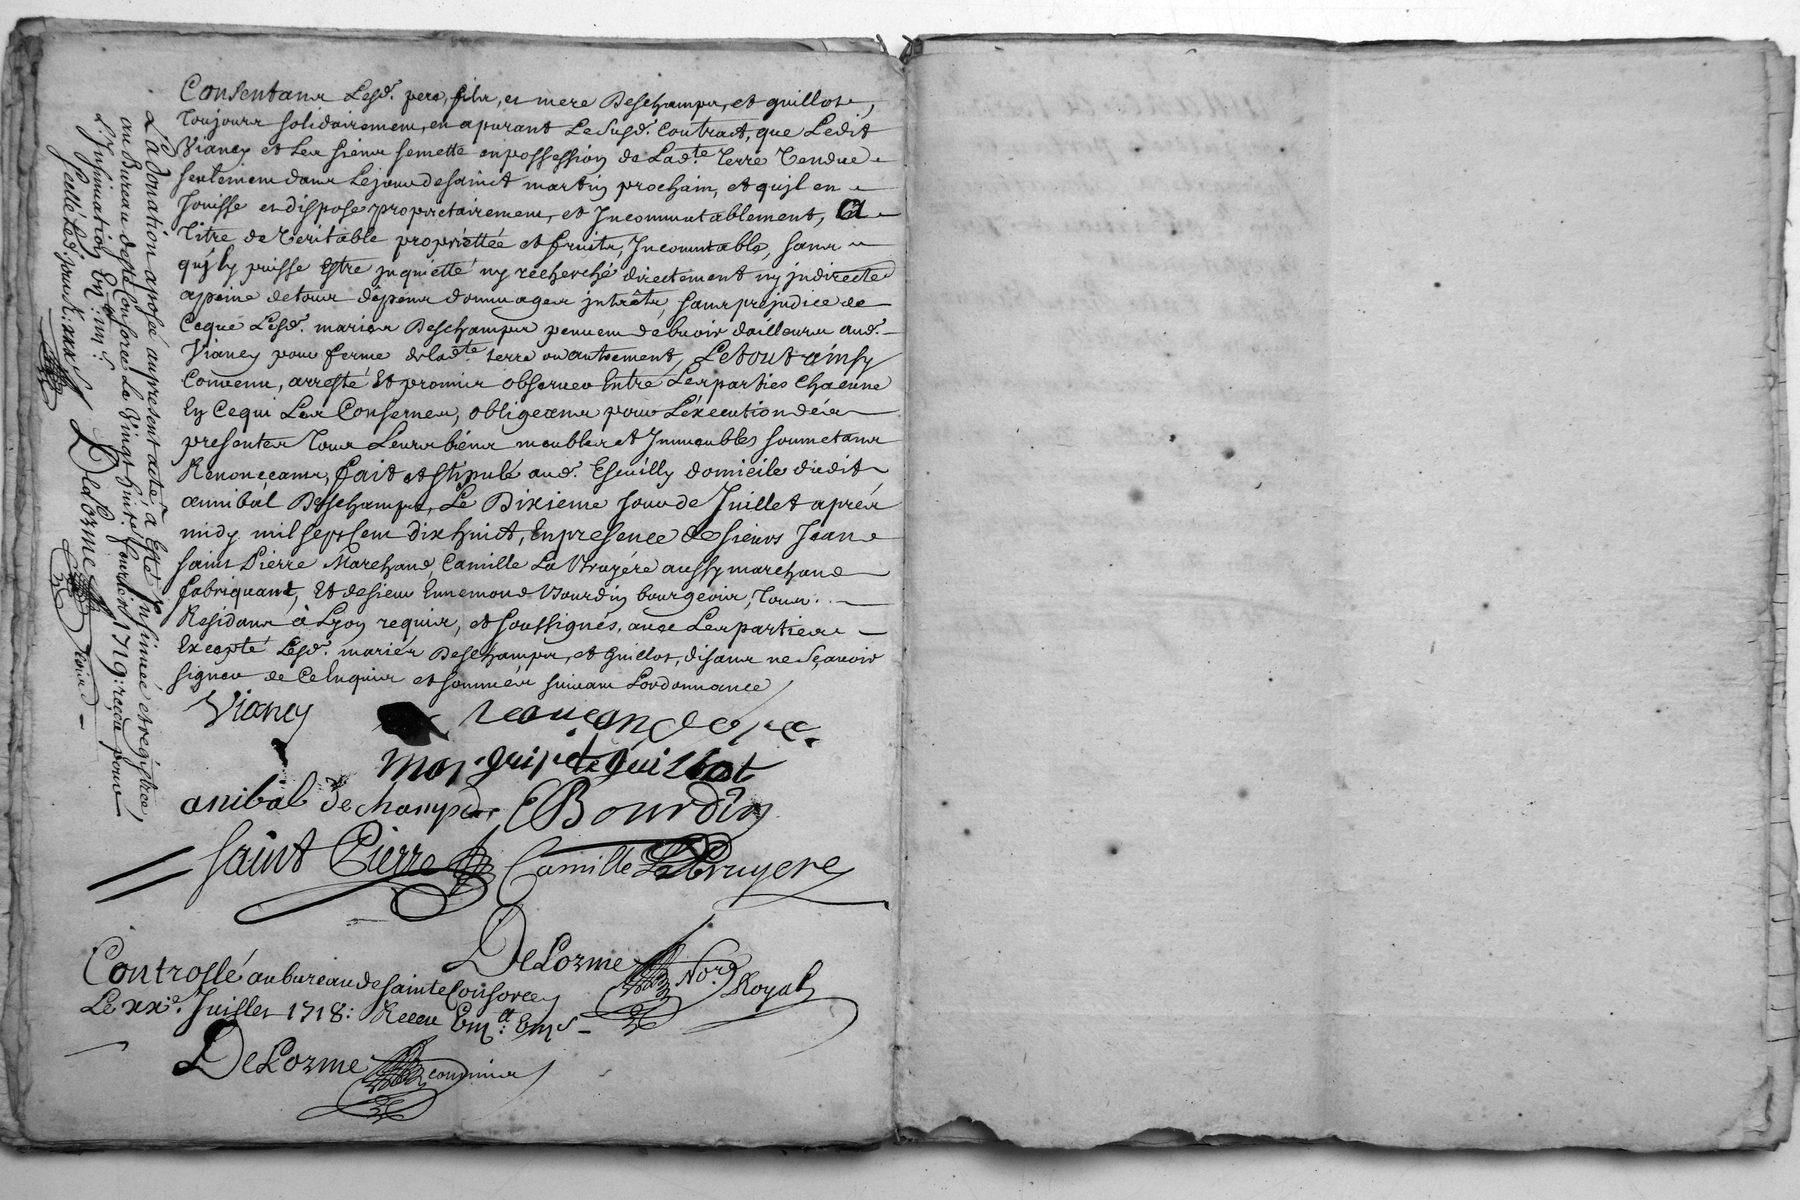 Consentans Lesd. pere, fils, et mere Deschamps, et guillot,
toujours solidairement, en apurant Le susd. Contract, que Ledit
Vianey et Les siens se mette en possession de Lad.te terre vendue
seulement dans Le jour de sainct martin prochain, et qu'jl en
Jouisse et dispose proprietairement, et Jncommutablement, a
titre de veritable propriettée et fruits, Jncommutable, sans
qu'jl y puisse Estre jnquietté ny recherché directement ny jndirecte
a peine de tous dépens dommages jntrêts, sans prejudice de
Ceque Lesd. mariés Deschamps peuvent debvoir dailleurs aud.
Vianey pour ferme de lad.te terre ou autrement, Le tout ainsy
Convenu, arresté Et promis observer Entre Les parties chacune
En Cequi Les Conserne, obligeans pour L'éxecution dés
presentes tous Leurs biens meubles et Jmmeubles soumetans
Renonceans, fait et stipulé aud. Escully domicile dudit
annibal Deschamps, Le Dixieme jour de Juillet aprés
midy mil sept cent dix huict, En presence de sieurs Jean
saint Pierre Marchand, Camille La Bruyére aussy marchand
fabriquant, Et de sieur Ennemond Bourdin bourgeois, tous
Residans à Lyon requis, et soussignés, avec Les parties
Excepté Lesd. mariés Deschamps, et Guillot, disans ne sçavoir
signer de Ce Enquis et sommés suivant Lordonnance
Vianey
guillot
anibal dechamps EBourdin
saint Pierre Camille LaBruyere
DeLorme No.re Royal
Controllé au bureau de sainte Consorce
Le xx.e Juillet 1718: Receu
DeLorme commis
La donation aposée au present acte, a Esté Jnsinuée et registrée
au Bureau de ste Consorce Le vingt huit Juillet 1719: reçeu pour
L'jnsinuation
scellé Led. jour
DeLorme